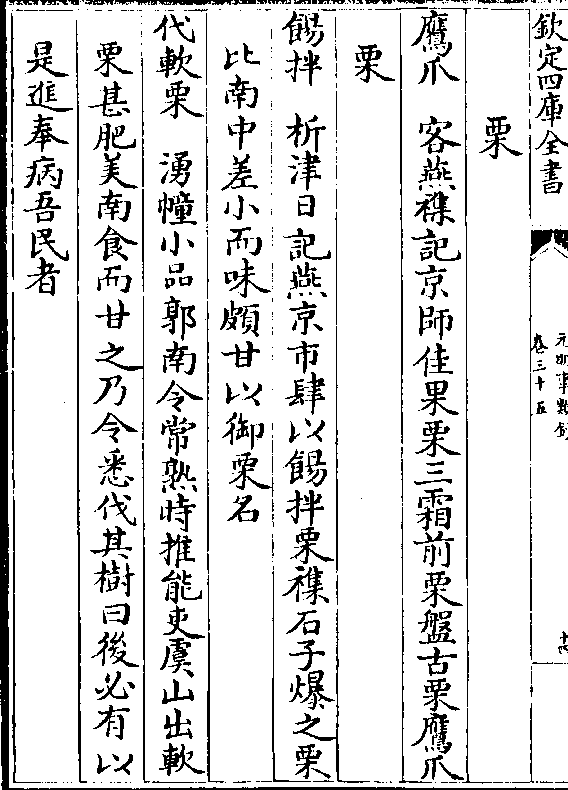 欽定四庫全書
元明事類鈔
卷三十五
十四
栗
鷹爪　客燕襍記京師佳果栗三霜前栗盤古栗鷹爪
栗
餳拌　析津日記燕京市肆以餳拌栗襍石子爆之栗
比南中差小而味頗甘以御栗名
代軟栗　湧幢小品郭南令常熟時推能吏虞山出軟
栗甚肥美南食而甘之乃令悉伐其樹曰後必有以
是進奉病吾民者